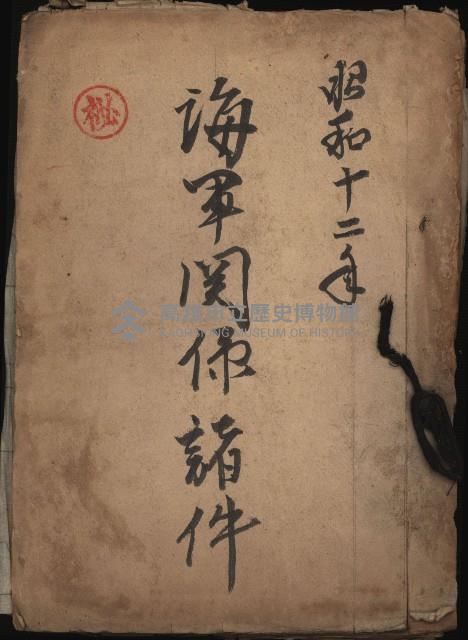 昭和十二年
海軍関係諸件
秘
高雄市立歷史博物館
KAOHSIUNG MUSEUM OF HISTORY